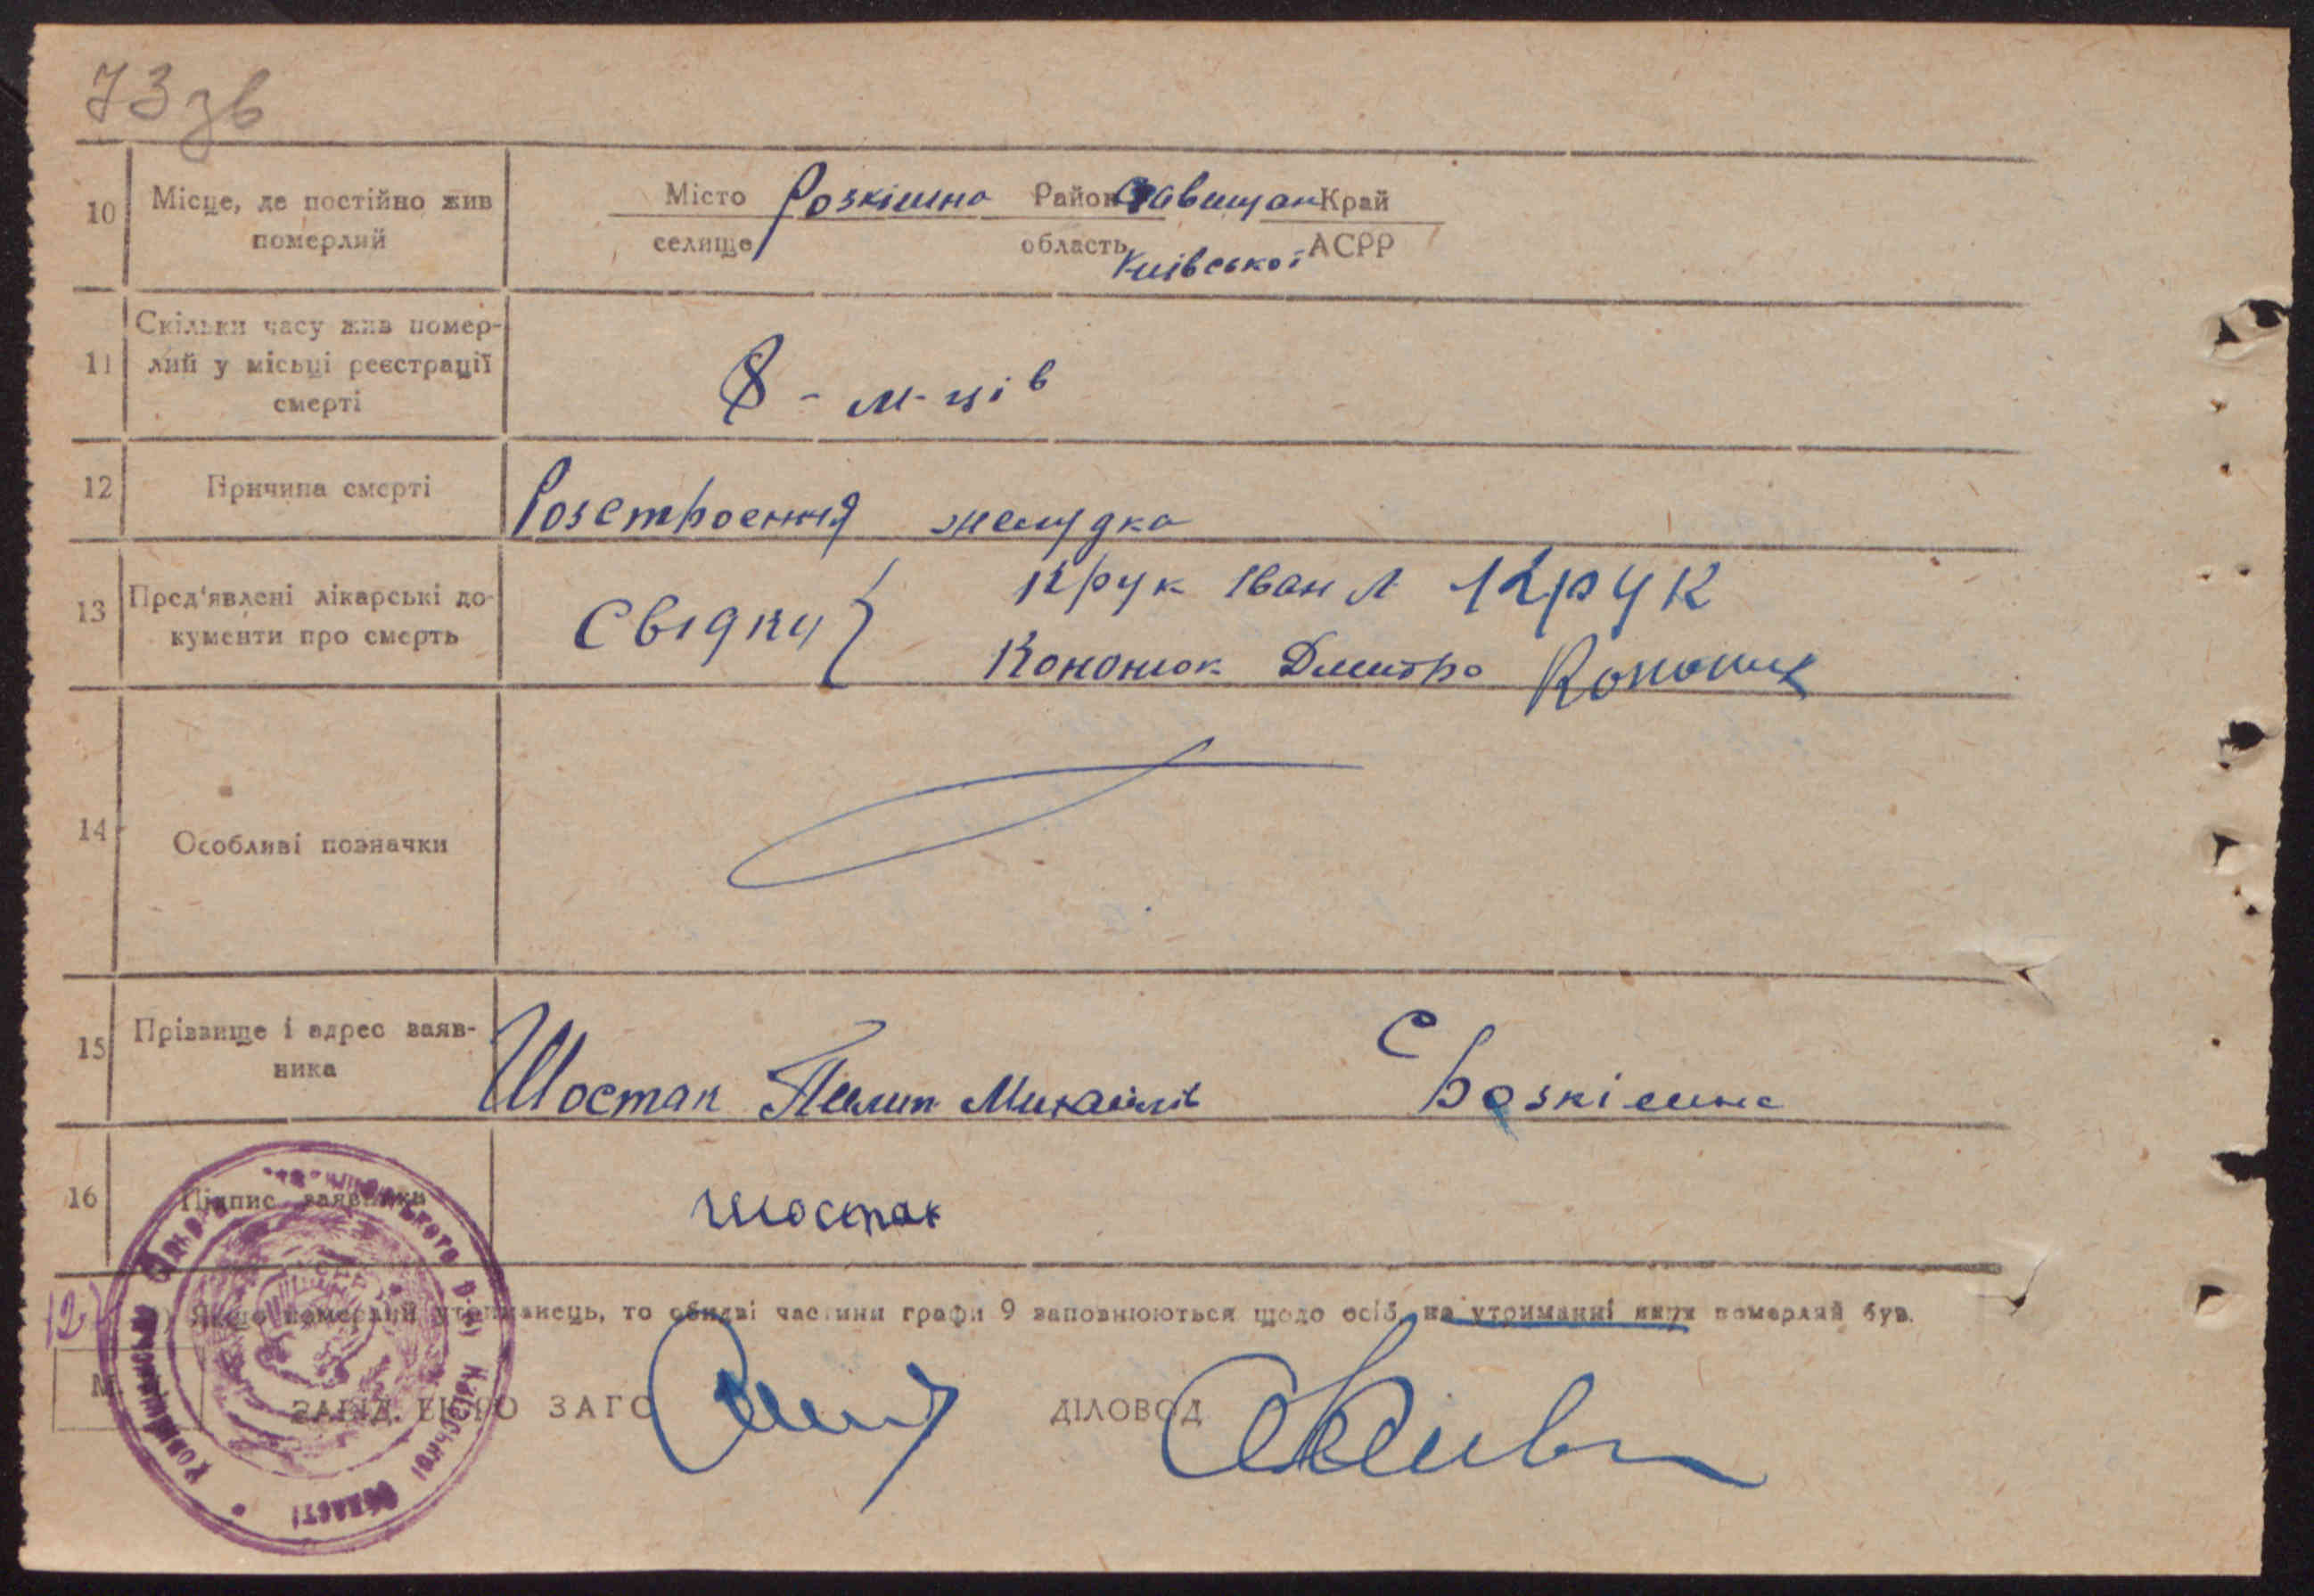 73 зв
10 Місце, де постійно жив померлий
Місто Розкішна Район Ставищан Край
селище область Київської АСРР
11 Скільки часу жив помер-
лий у місьці реєстрації
смерті
8 - м-ців
12 Причина смерті Розстроення желудка
13 Пред'явлені лікарські до-
кументи про смерть
Свідки { Крук Іван Л Крук
Кононюк Дмитро Кононюк
14 Особливі позначки
15 Прізвище і адрес заяв-
ника
Шостак Пилип Михайлів С Розкішна
16 Підпис заявника Шостак
12)
) Якщо померлий утриманець, то обидві частини графи 9 заповнюються щодо осіб, на утриманні яких померлий був.
М
ЗАВІД. БЮРО ЗАГС
ДІЛОВОД